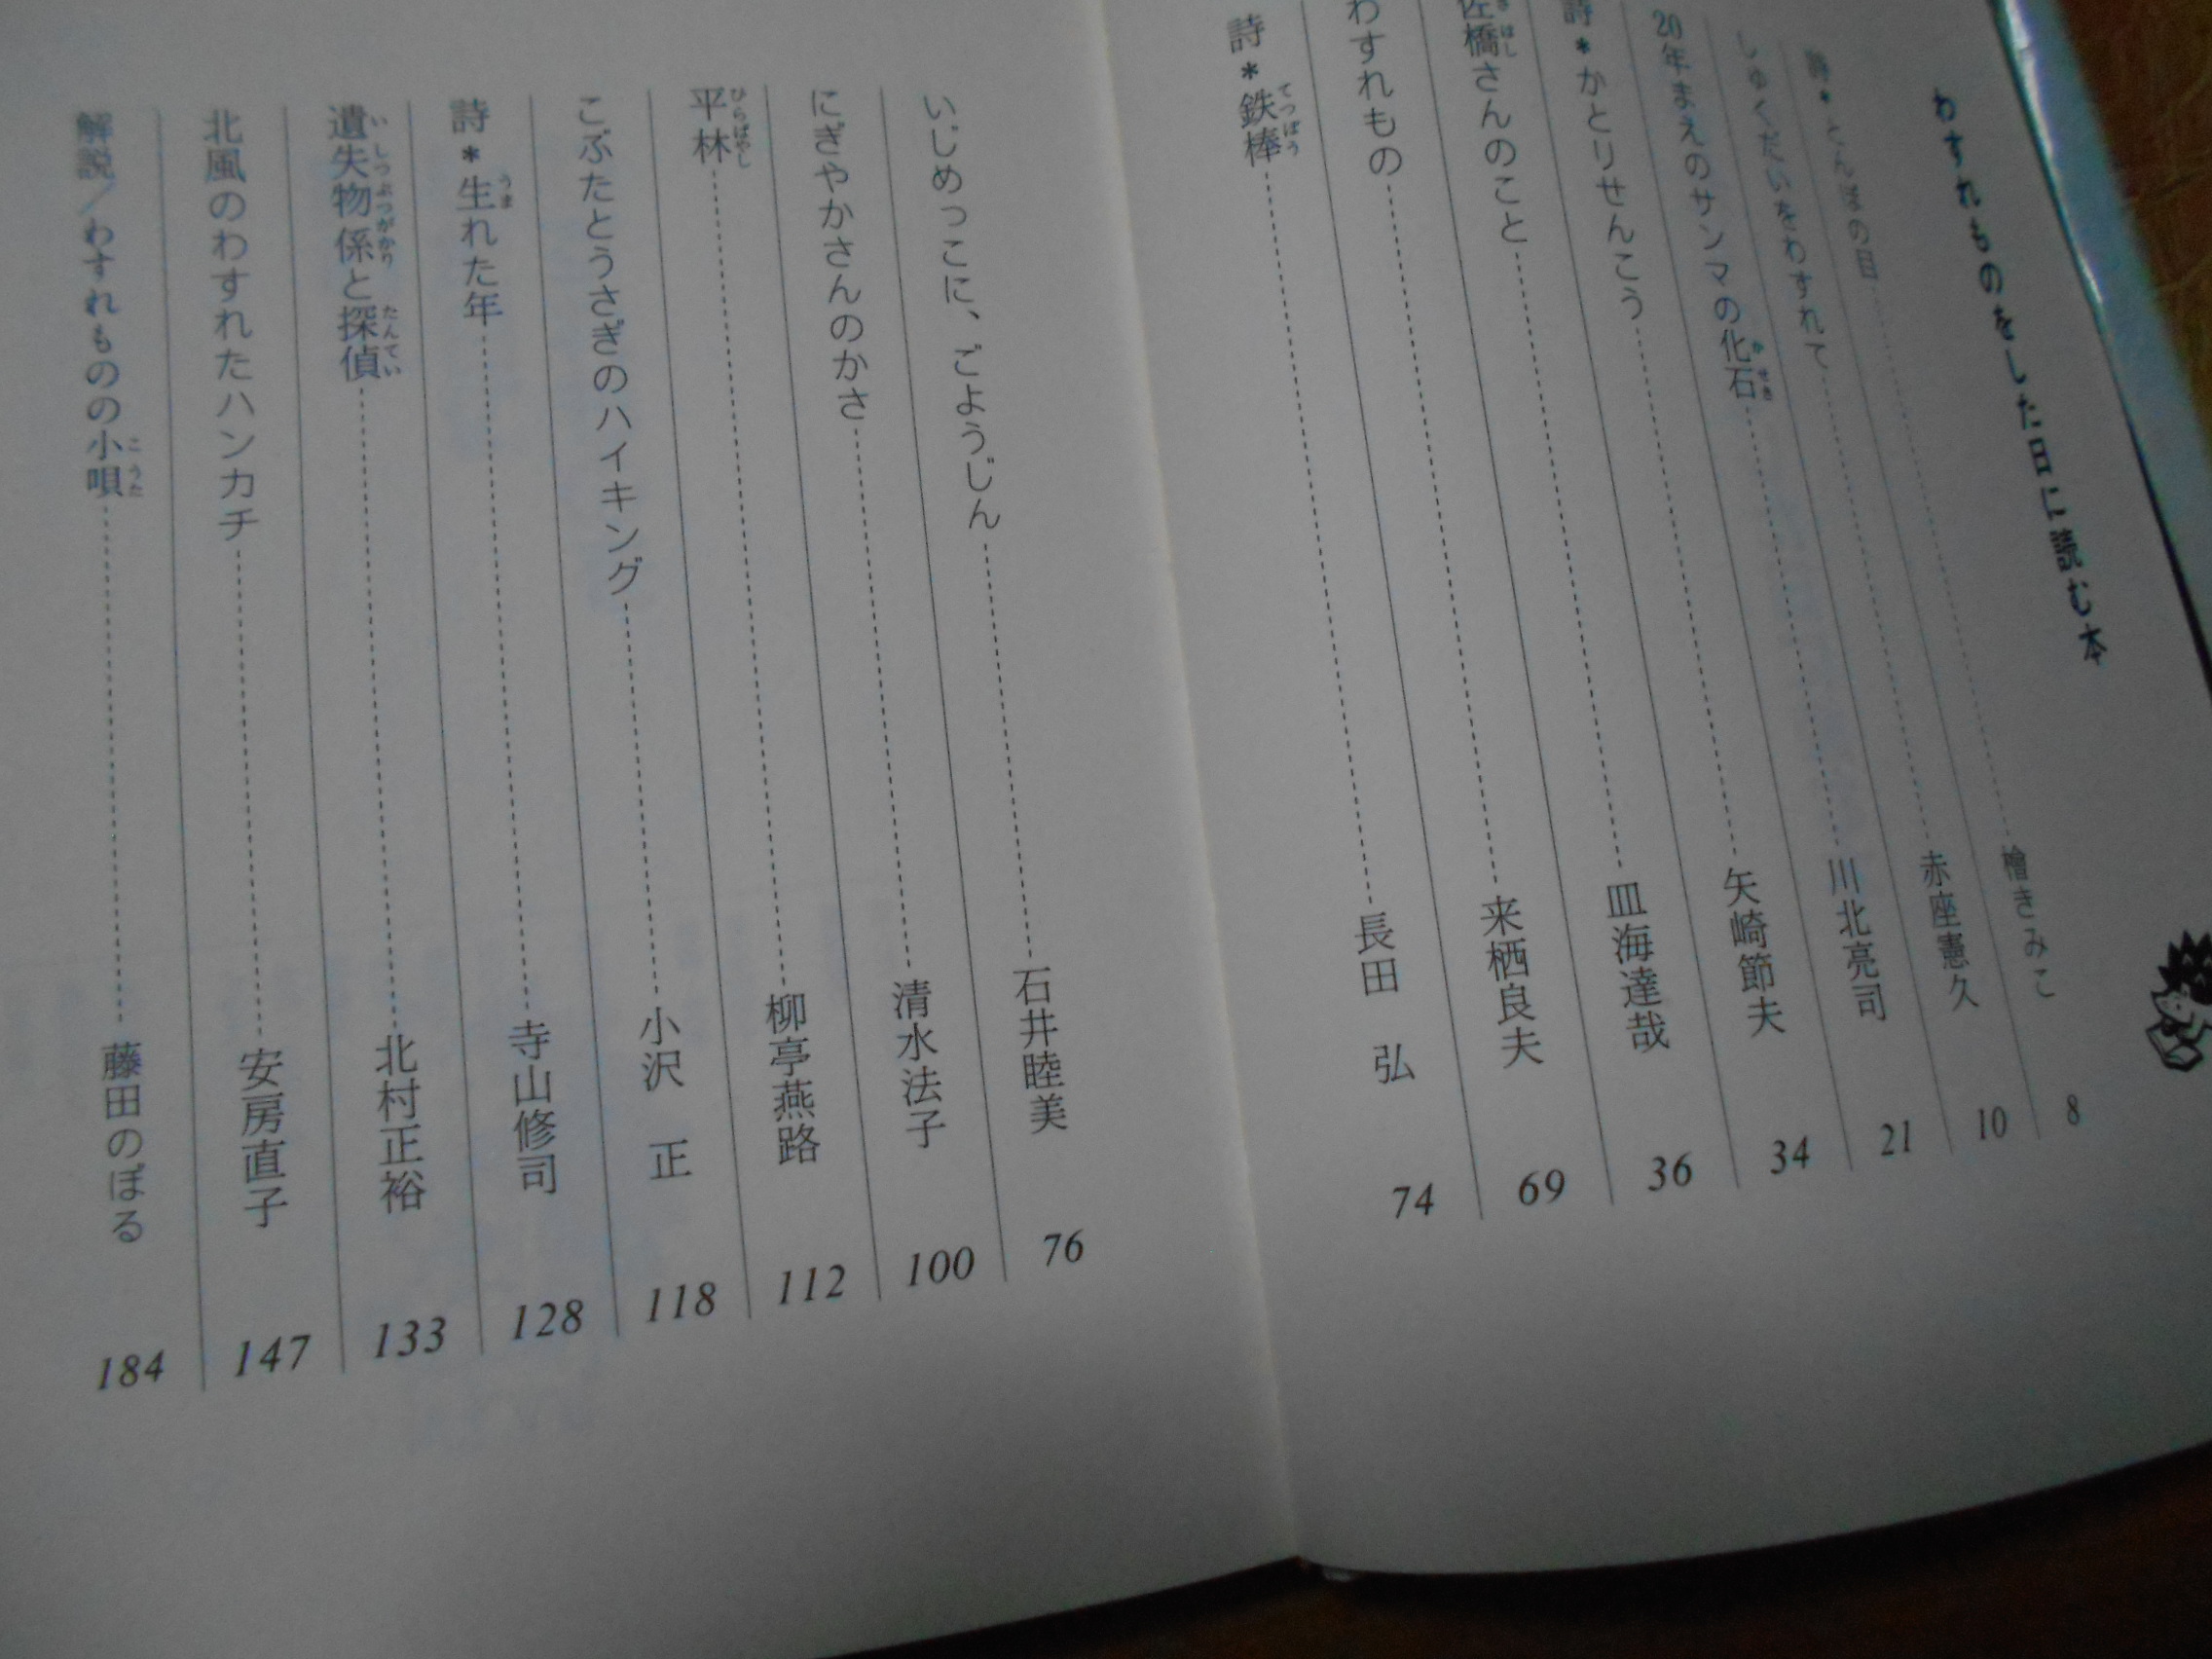 わすれものをした日に読む本
詩*とんぼの目 檜きみこ 8
しゅくだいをわすれて 赤座憲久 10
20年まえのサンマの化石 川北亮司 21
詩*かとりせんこう 矢崎節夫 34
佐橋さんのこと 皿海達哉 36
わすれもの 来栖良夫 69
詩*鉄棒 長田 弘 74
いじめっこに、ごようじん 石井睦美 76
にぎやかさんのかさ 清水法子 100
平林 柳亭燕路 112
こぶたとうさぎのハイキング 小沢 正 118
詩*生れた年 寺山修司 128
遺失物係と探偵 北村正裕 133
北風のわすれたハンカチ 安房直子 147
解説／わすれものの小唄 藤田のぼる 184